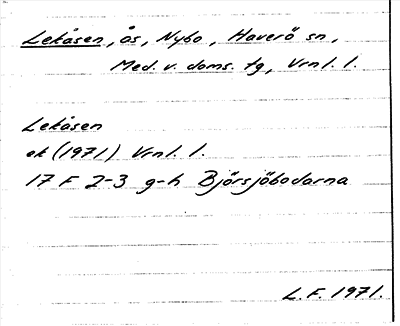 Lekåsen, ås, Nybo, Haverö sn,
Med. v. doms. tg, Vrnl. l.
Lekåsen
ek (1971) Vrnl. l.
17 F 2-3 g-h Björsjöbodarna
L.F. 1971.